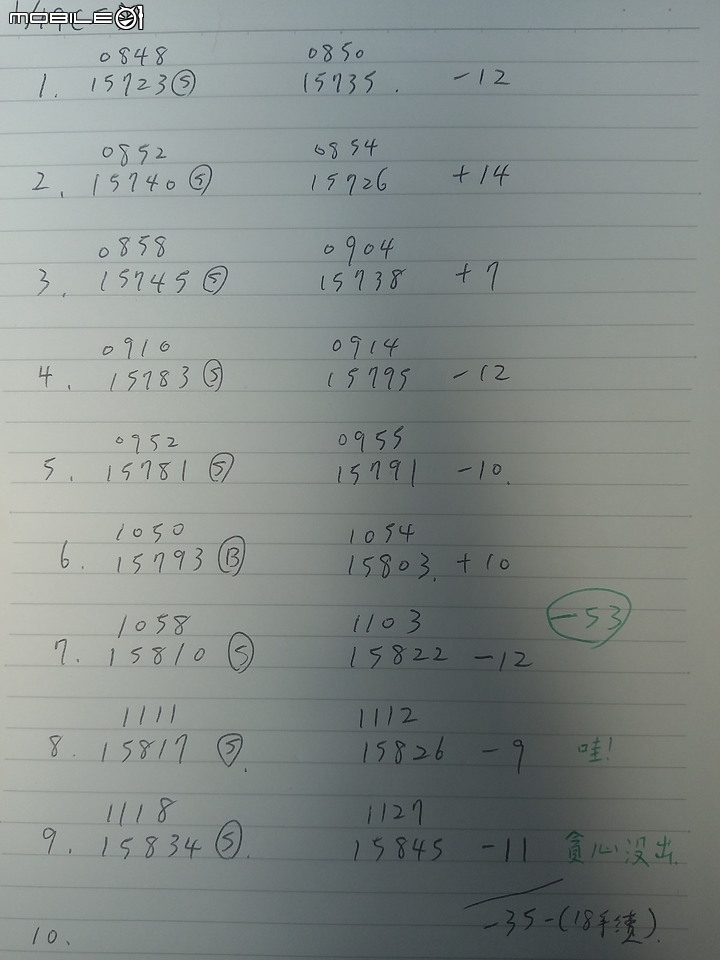 MOBILE01
0848 0850
1. 15723 Ⓢ 15735. -12
0852 0854
2. 15740 Ⓢ 15726 +14
0858 0904
3. 15745 Ⓢ 15738 +7
0910 0914
4. 15783 Ⓢ 15795 -12
0952 0955
5. 15781 Ⓢ 15791 -10.
1050 1054
6. 15793 Ⓑ 15803. +10
-53
1058 1103
7. 15810 Ⓢ 15822 -12
1111 1112
8. 15817 Ⓢ. 15826 -9 哇!
1118 1127
9. 15834 Ⓢ. 15845 -11 貪心沒出.
-35-(18手續).
10.